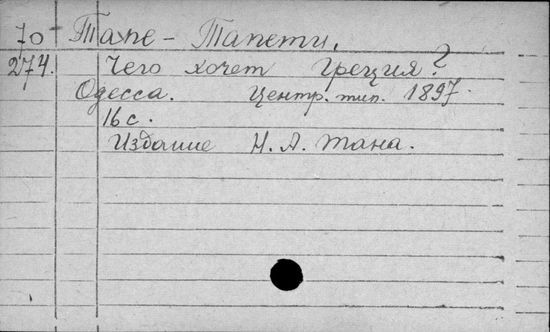 70 Тапе - Тапети.
274. Чего хочет Греция?
Одесса. Центр. тип. 1897.
16 с.
Издание Н. А. Тана.